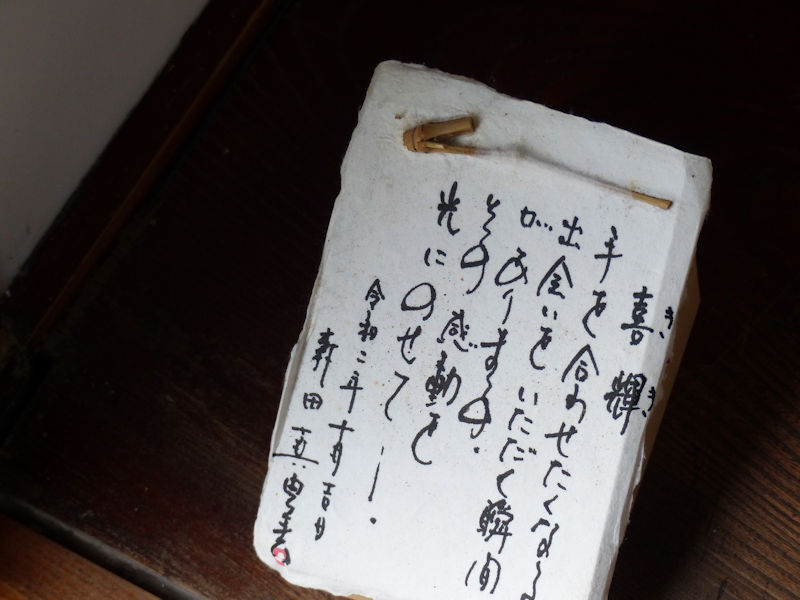 喜輝
きき
手を合わせたくなる
出会いをいただく瞬間
がありますの。
その感動を
光にのせて
令和二年十月吉日
田